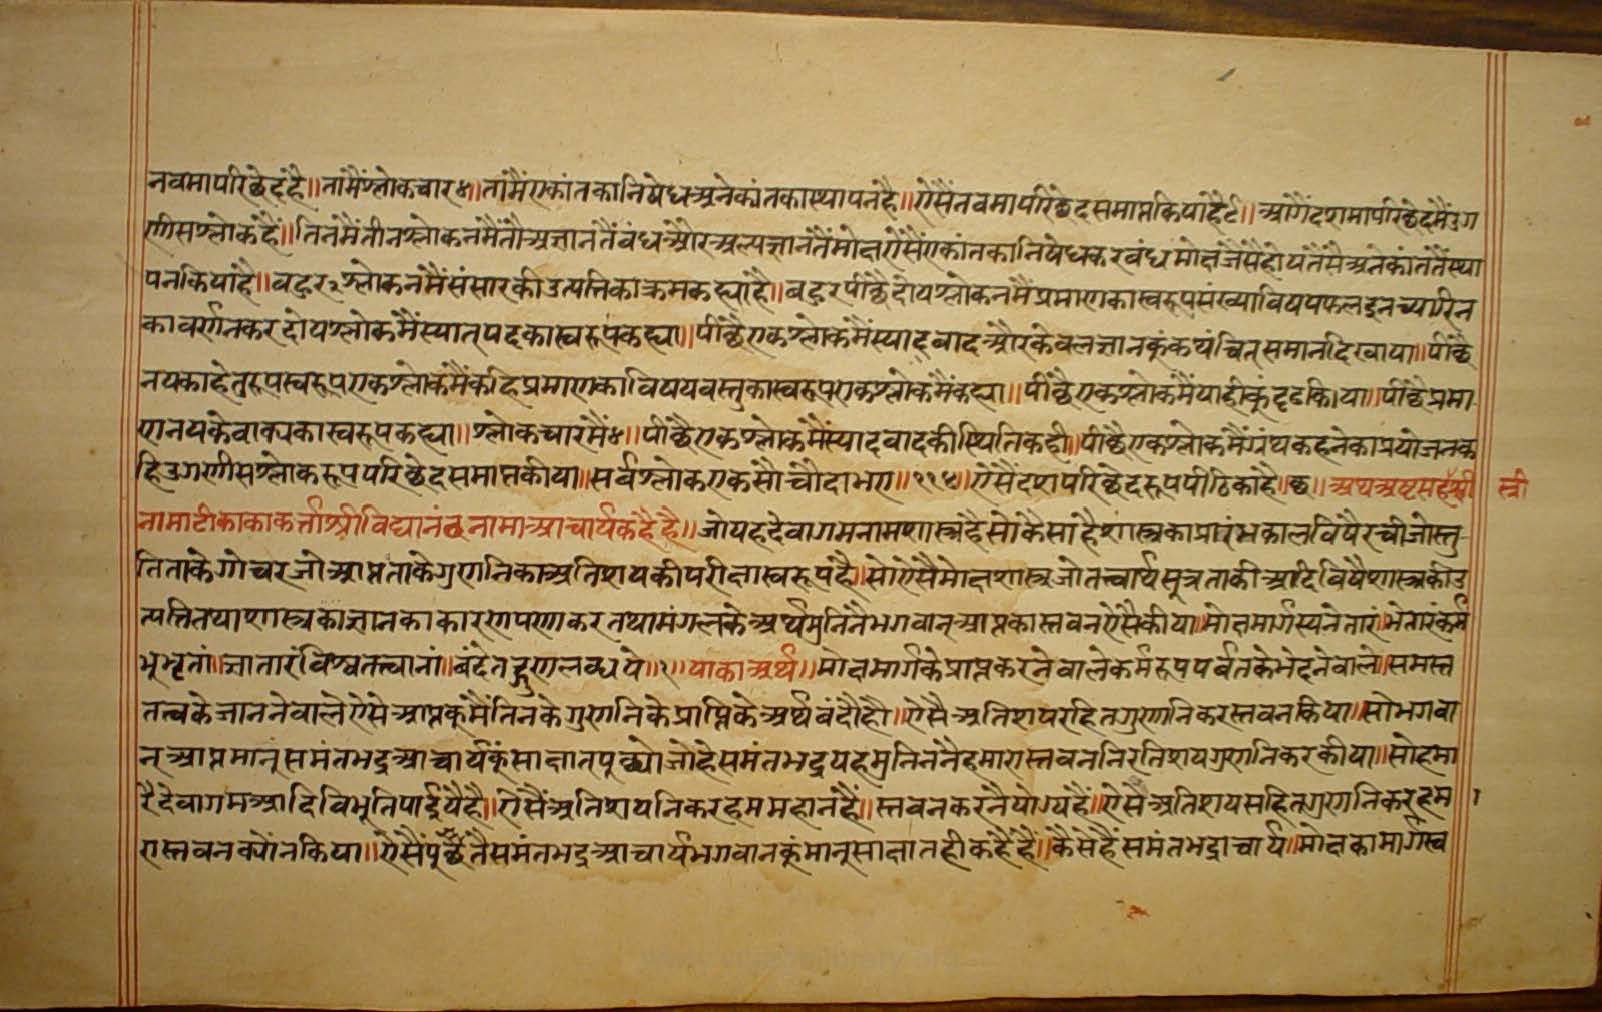 नवमापरिछेदहै॥तामैंश्लोकच्यार४॥तांमैंएकांतकानिषेधअनेकांतकास्थापनहै॥ऐसैंनवमापरिछेदसमाप्तकियाहै९॥आगैंदशमापरिछेदमैंउग
णीसश्लोकहैं॥तिनमैंतीनश्लोकनमैंतौअज्ञानतैंबंधऔरअल्पज्ञानतैंमोक्षऐसैंएकांतकानिषेधकरबंधमोक्षजैसैंहोयतैसैंअनेकांततैंस्था
पनकियाहै॥बहुर२श्लोकनमैंसंसारकीउत्पत्तिकाक्रमकह्याहै॥बहुरपीछैदोयश्लोकनमैंप्रमाणकास्वरूपसंख्याविषयफलइनच्यारिन
कावर्णनकरदोयश्लोकमैंस्यात्पदकास्वरूपकह्या॥पीछैएकश्लोकमैंस्याद्वादऔरकेवलज्ञानकूंकथंचित्समानदिखाया॥पीछै
नयकाहेतुरूपस्वरूपएकश्लोकमैंकहिप्रमाणकाविषयवस्तुकास्वरूपएकश्लोकमैंकह्या॥पीछैएकश्लोकमैंयाहीकुंदृढकिया॥पीछैप्रमा
णनयकेवाक्यकास्वरूपकह्या॥श्लोकच्यारमैं४॥पीछैएकश्लोकमैंस्यादवादकीस्थितिकही॥पीछैएकश्लोकमैंग्रंथकहनेकाप्रयोजनक
हिउगणीसश्लोकरूपपरिछेदसमाप्तकीया॥सर्वश्लोकएकसौचौदाभए॥११४॥ऐसैंदशपरिछेदरूपपीठिकाहै॥छ॥अथअष्टसहस्री स्त्री
नामाटीकाकाकर्त्ताश्रीविद्यानंदनामाआचार्यकहैहै॥जोयहदेवागमनामशास्त्रहैसोकैसाहैशास्त्रकाप्रारंभकालविषैरचीजोस्तु
तिताकेगोचरजोआप्तताकेगुणनिकाअतिशयकीपरीक्षास्वरूपहै॥सोऐसैमोक्षशास्त्रजोतत्त्वार्थसूत्रताकीआदिविषैशास्त्रकीउ
त्पत्तितथाशास्त्रकाज्ञानकाकारणपणकरतथामंगलकेअर्थमुनिनैभगवान्आप्तकास्तवनऐसैकीया॥मोक्षमार्गस्यनेतारंभेतारंकर्म
भूभृतां॥ज्ञातारंविश्वतत्त्वानां॥वंदेतद्गुणलब्धये॥१॥याकाअर्थ॥मोक्षमार्गकेप्राप्तकरनेवालेकर्मरूपपर्वतकेभेदनेवाले॥समस्त
तत्त्वकेजाननेवालेऐसेआप्तकुंमैंतिनकेगुणनिकेप्राप्तिकेअर्थबंदौहौ॥ऐसैअतिशयरहितगुणनिकरस्तवनकिया॥सोभगवा
न्आप्तमानुसमंतभद्रआचार्यकूंसाक्षातपूछ्योजोहेसमंतभद्रयहमुनिननैहमारास्तवननिरतिशयगुणनिकरकीया॥सोहमा
रैदेवागमआदिविभूतिपाईयैहै॥ऐसैंअतिशयनिकरहममहानहैं॥स्तवनकरनैयोग्यहैं॥ऐसैअतिशयसहितगुणनिकरहम
रास्तवनक्यौंनकिया॥ऐसैंपूछैतैसमंतभद्रआचार्यभगवानकूंमानुसाक्षातहीकहैहैं॥कैसेहैंसमंतभद्राचार्य॥मोक्षकामार्गस्व